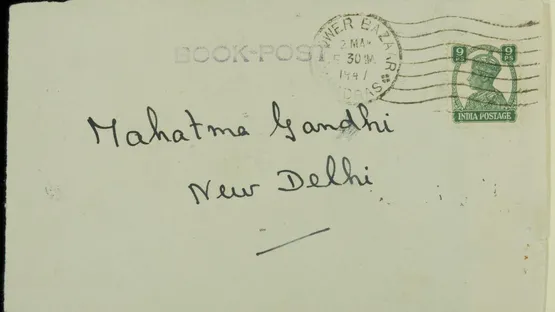 BOOK-POST
BAZAAR
2 MAY
9 PS 9 PS
INDIA POSTAGE
Mahatma Gandhi
New Delhi